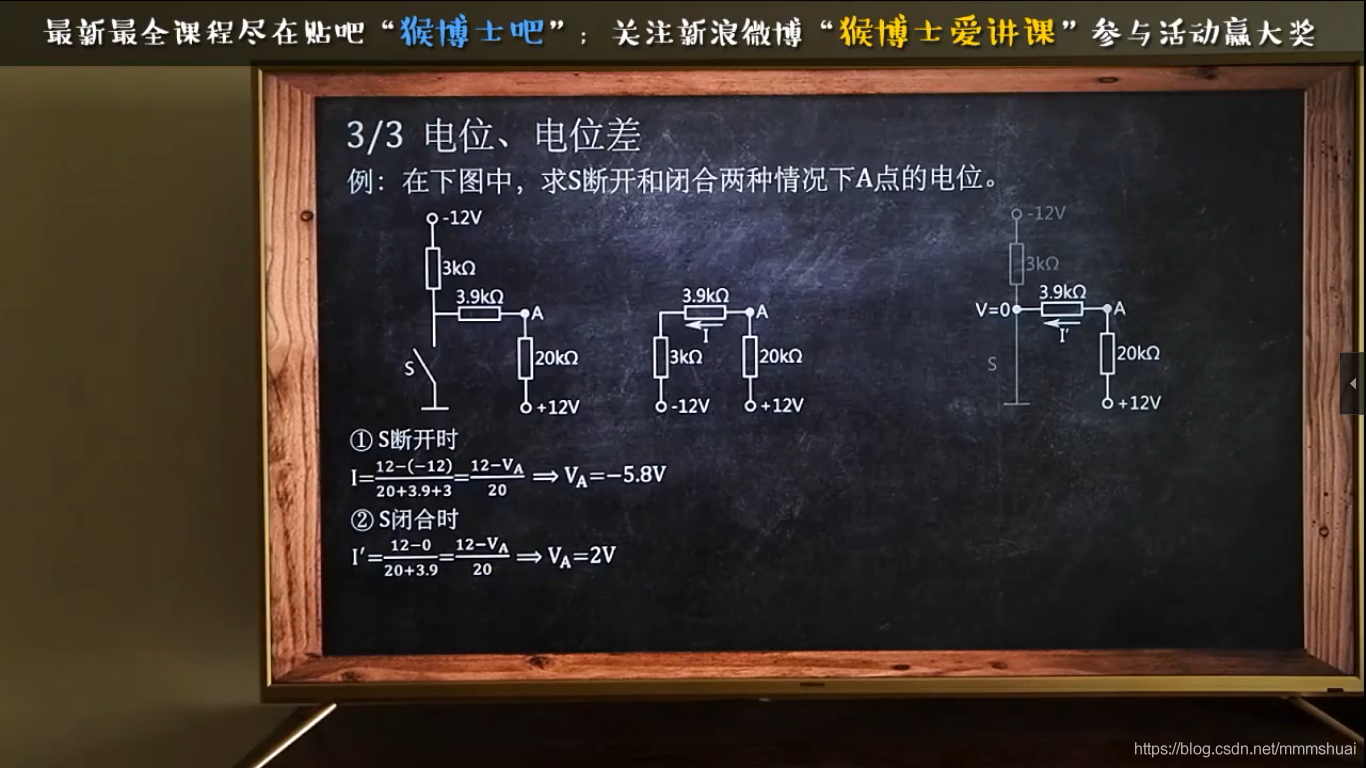 最新最全课程尽在贴吧“猴博士吧”；关注新浪微博“猴博士爱讲课”参与活动赢大奖
3/3 电位、电位差
例：在下图中，求S断开和闭合两种情况下A点的电位。
-12V
3kΩ
3.9kΩ
A
S
20kΩ
+12V
3.9kΩ
A
I
3kΩ
20kΩ
-12V
+12V
-12V
3kΩ
3.9kΩ
V=0
A
I′
S
20kΩ
+12V
① S断开时
I=12−(−12)/20+3.9+3=12−VA/20 ⟹ VA=−5.8V
② S闭合时
I′=12−0/20+3.9=12−VA/20 ⟹ VA=2V
https://blog.csdn.net/mmmshuai